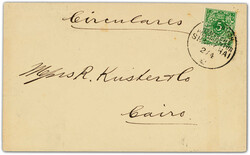 Circulares
5
SHANGHAI
2/4
Messrs R. Kuster & Co
Cairo.